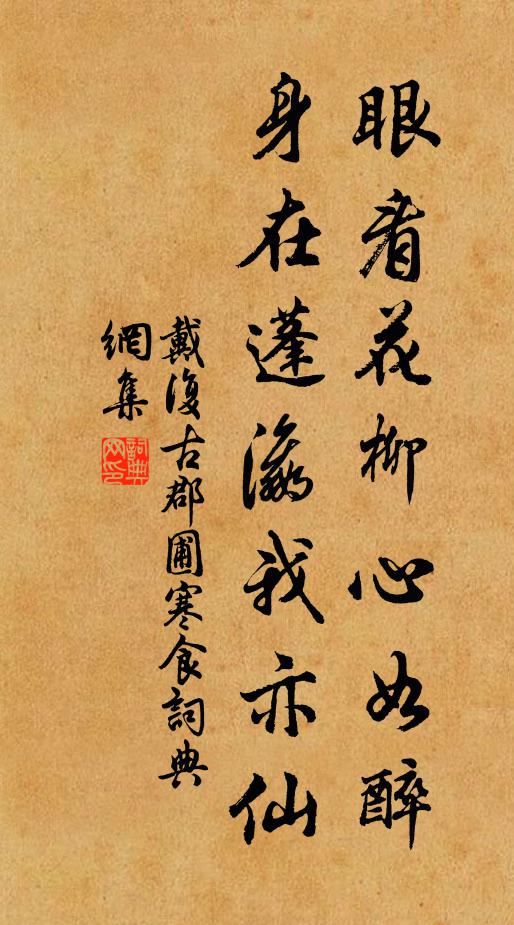 眼看花柳心如醉
身在蓬瀛我亦仙
戴復古郡圃寒食詞典
網集
詞典网印